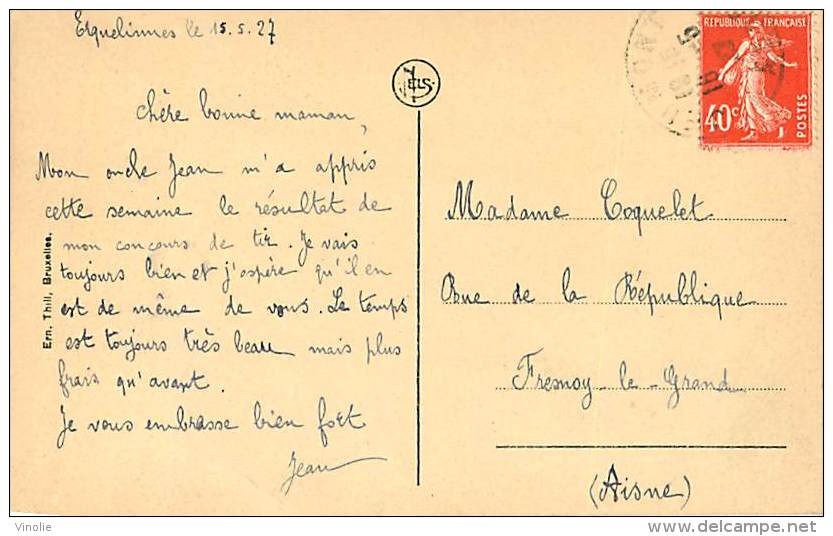 Erquelinnes le 15.5.27
Chère bonne maman,
Mon oncle Jean m'a appris
cette semaine le résultat de
mon concours de tir. Je vais
toujours bien et j'espère qu'il en
est de même de vous. Le temps
est toujours très beau mais plus
frais qu'avant.
Je vous embrasse bien fort
Jean
Ern. Thill, Bruxelles.
NELS
REPUBLIQUE FRANÇAISE
40c
POSTES
Madame Coquelet
Rue de la République
Fresnoy-le-Grand
(Aisne)
Vinolie
delcampe.net